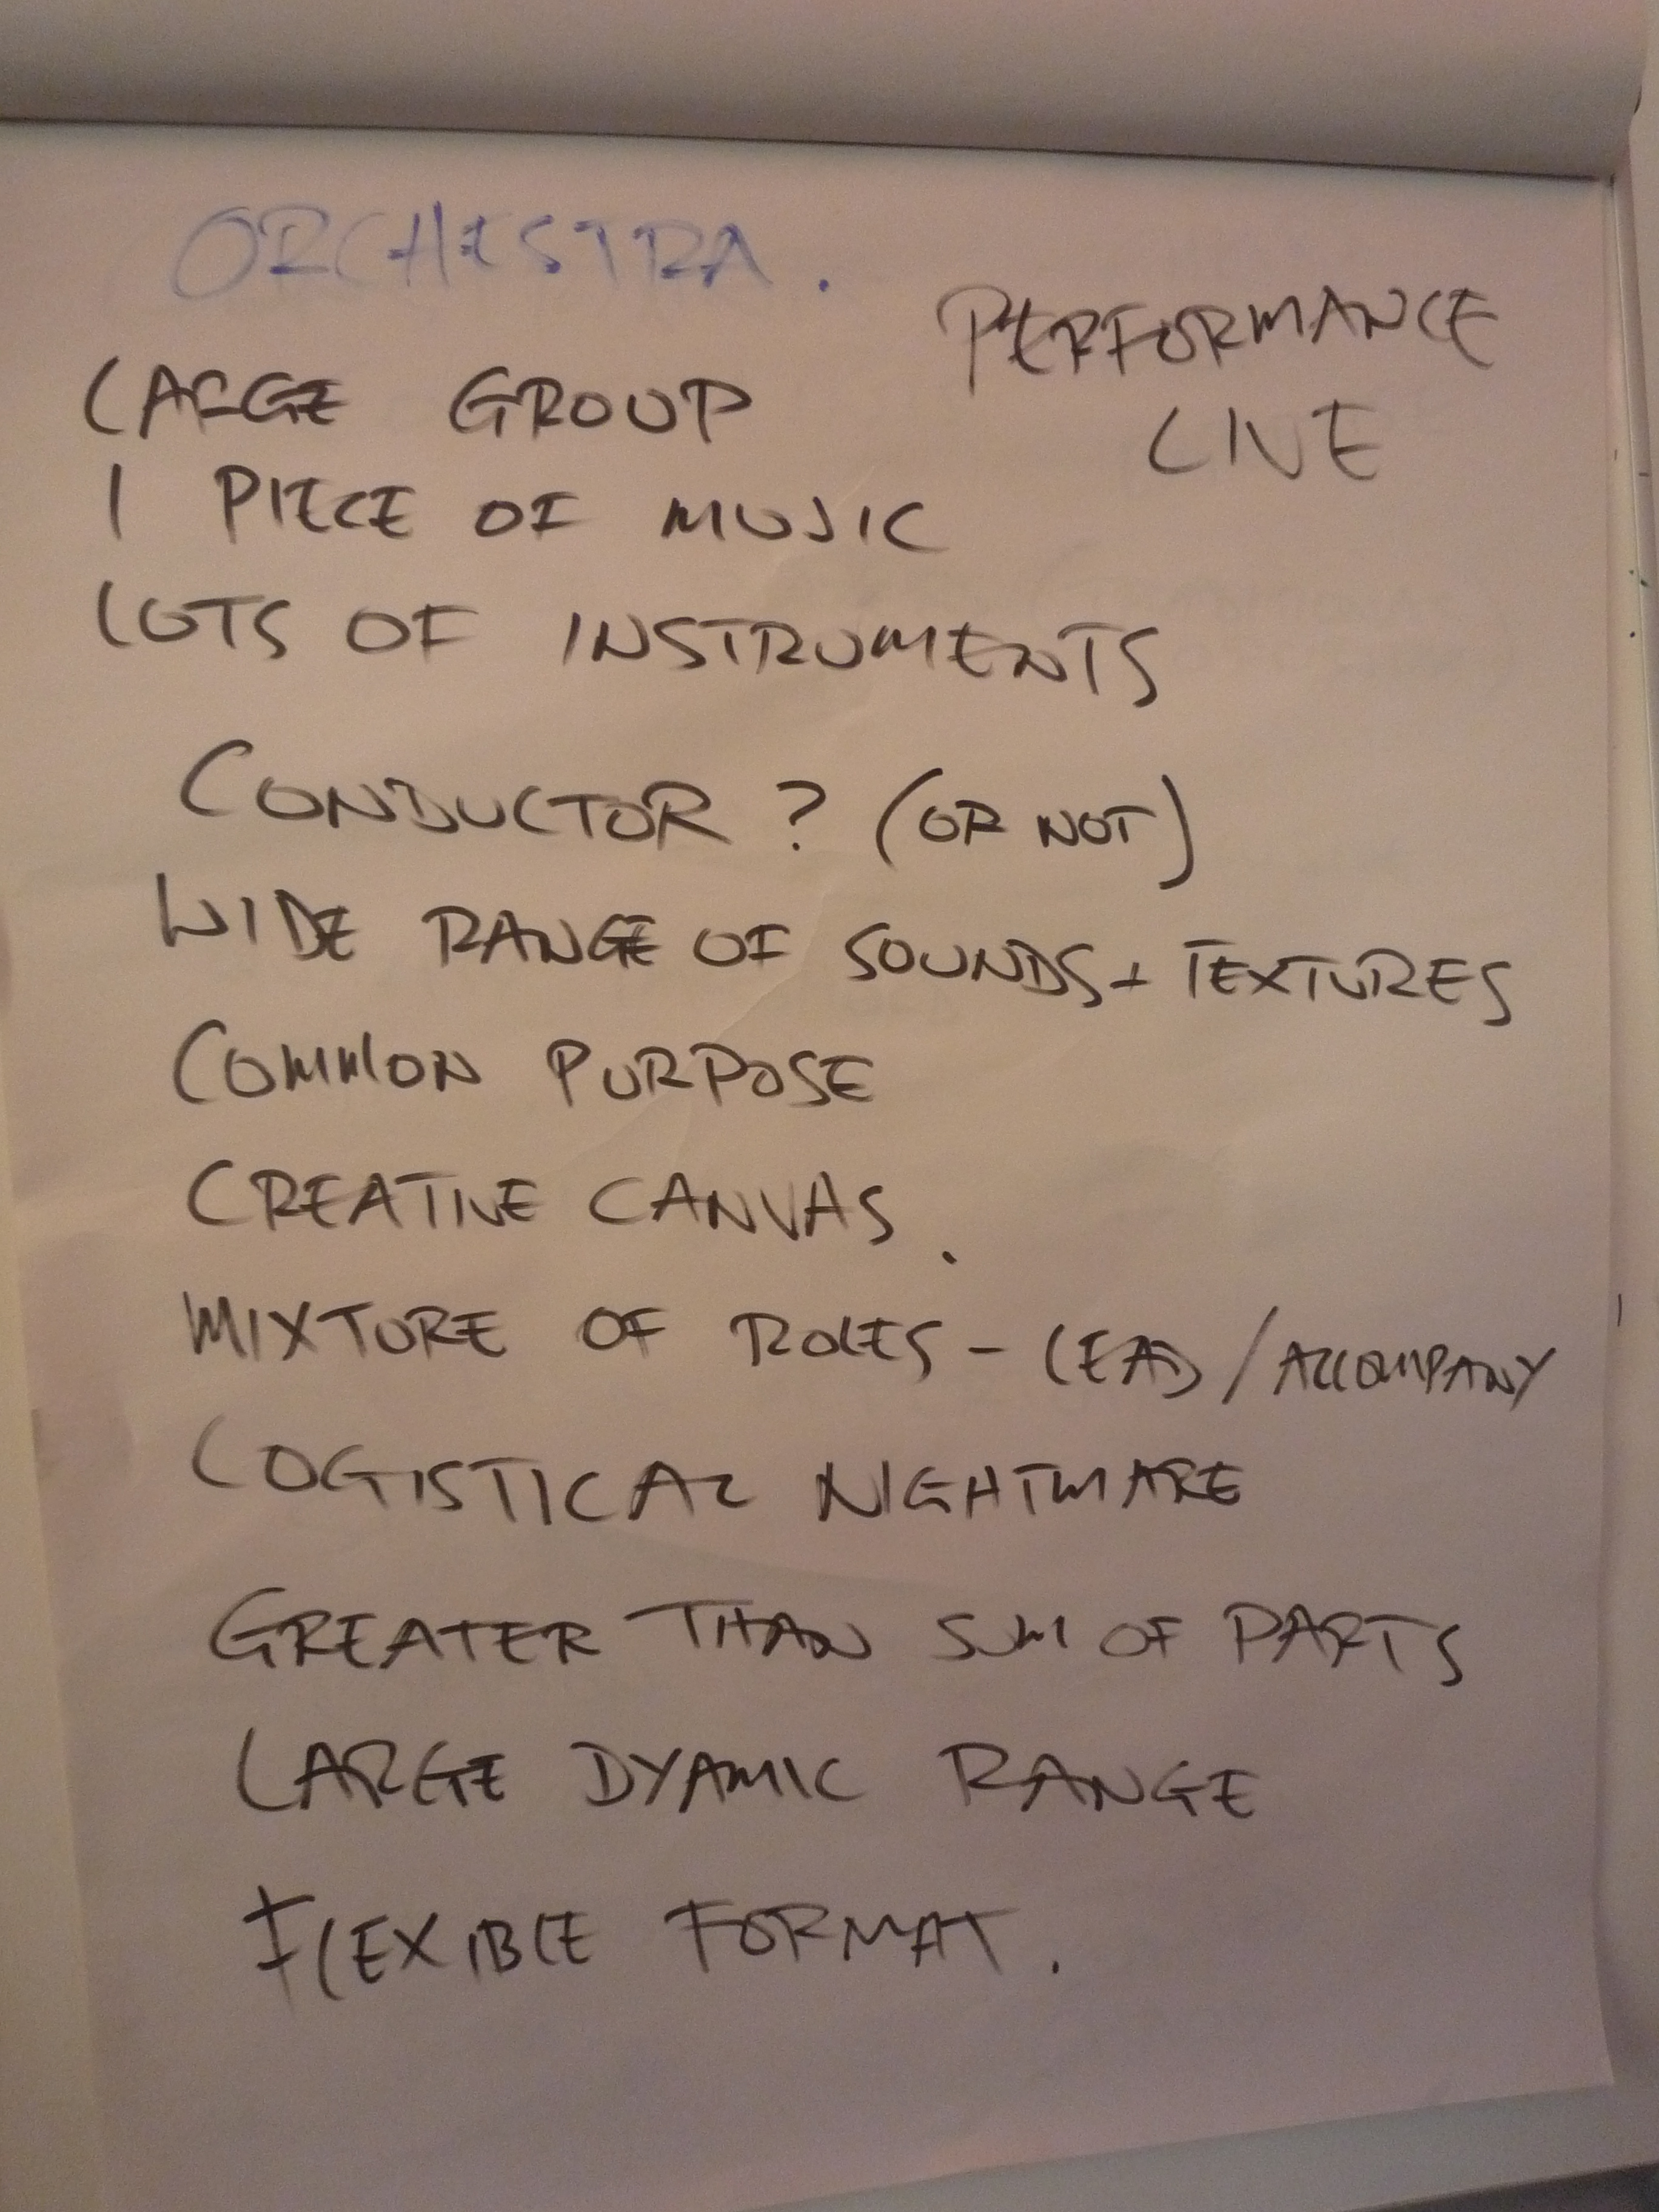 ORCHESTRA.
PERFORMANCE
LIVE
LARGE GROUP
1 PIECE OF MUSIC
LOTS OF INSTRUMENTS
CONDUCTOR ? (OR NOT)
WIDE RANGE OF SOUNDS + TEXTURES
COMMON PURPOSE
CREATIVE CANVAS.
MIXTURE OF ROLES - LEAD / ACCOMPANY
LOGISTICAL NIGHTMARE
GREATER THAN SUM OF PARTS
LARGE DYAMIC RANGE
FLEXIBLE FORMAT.